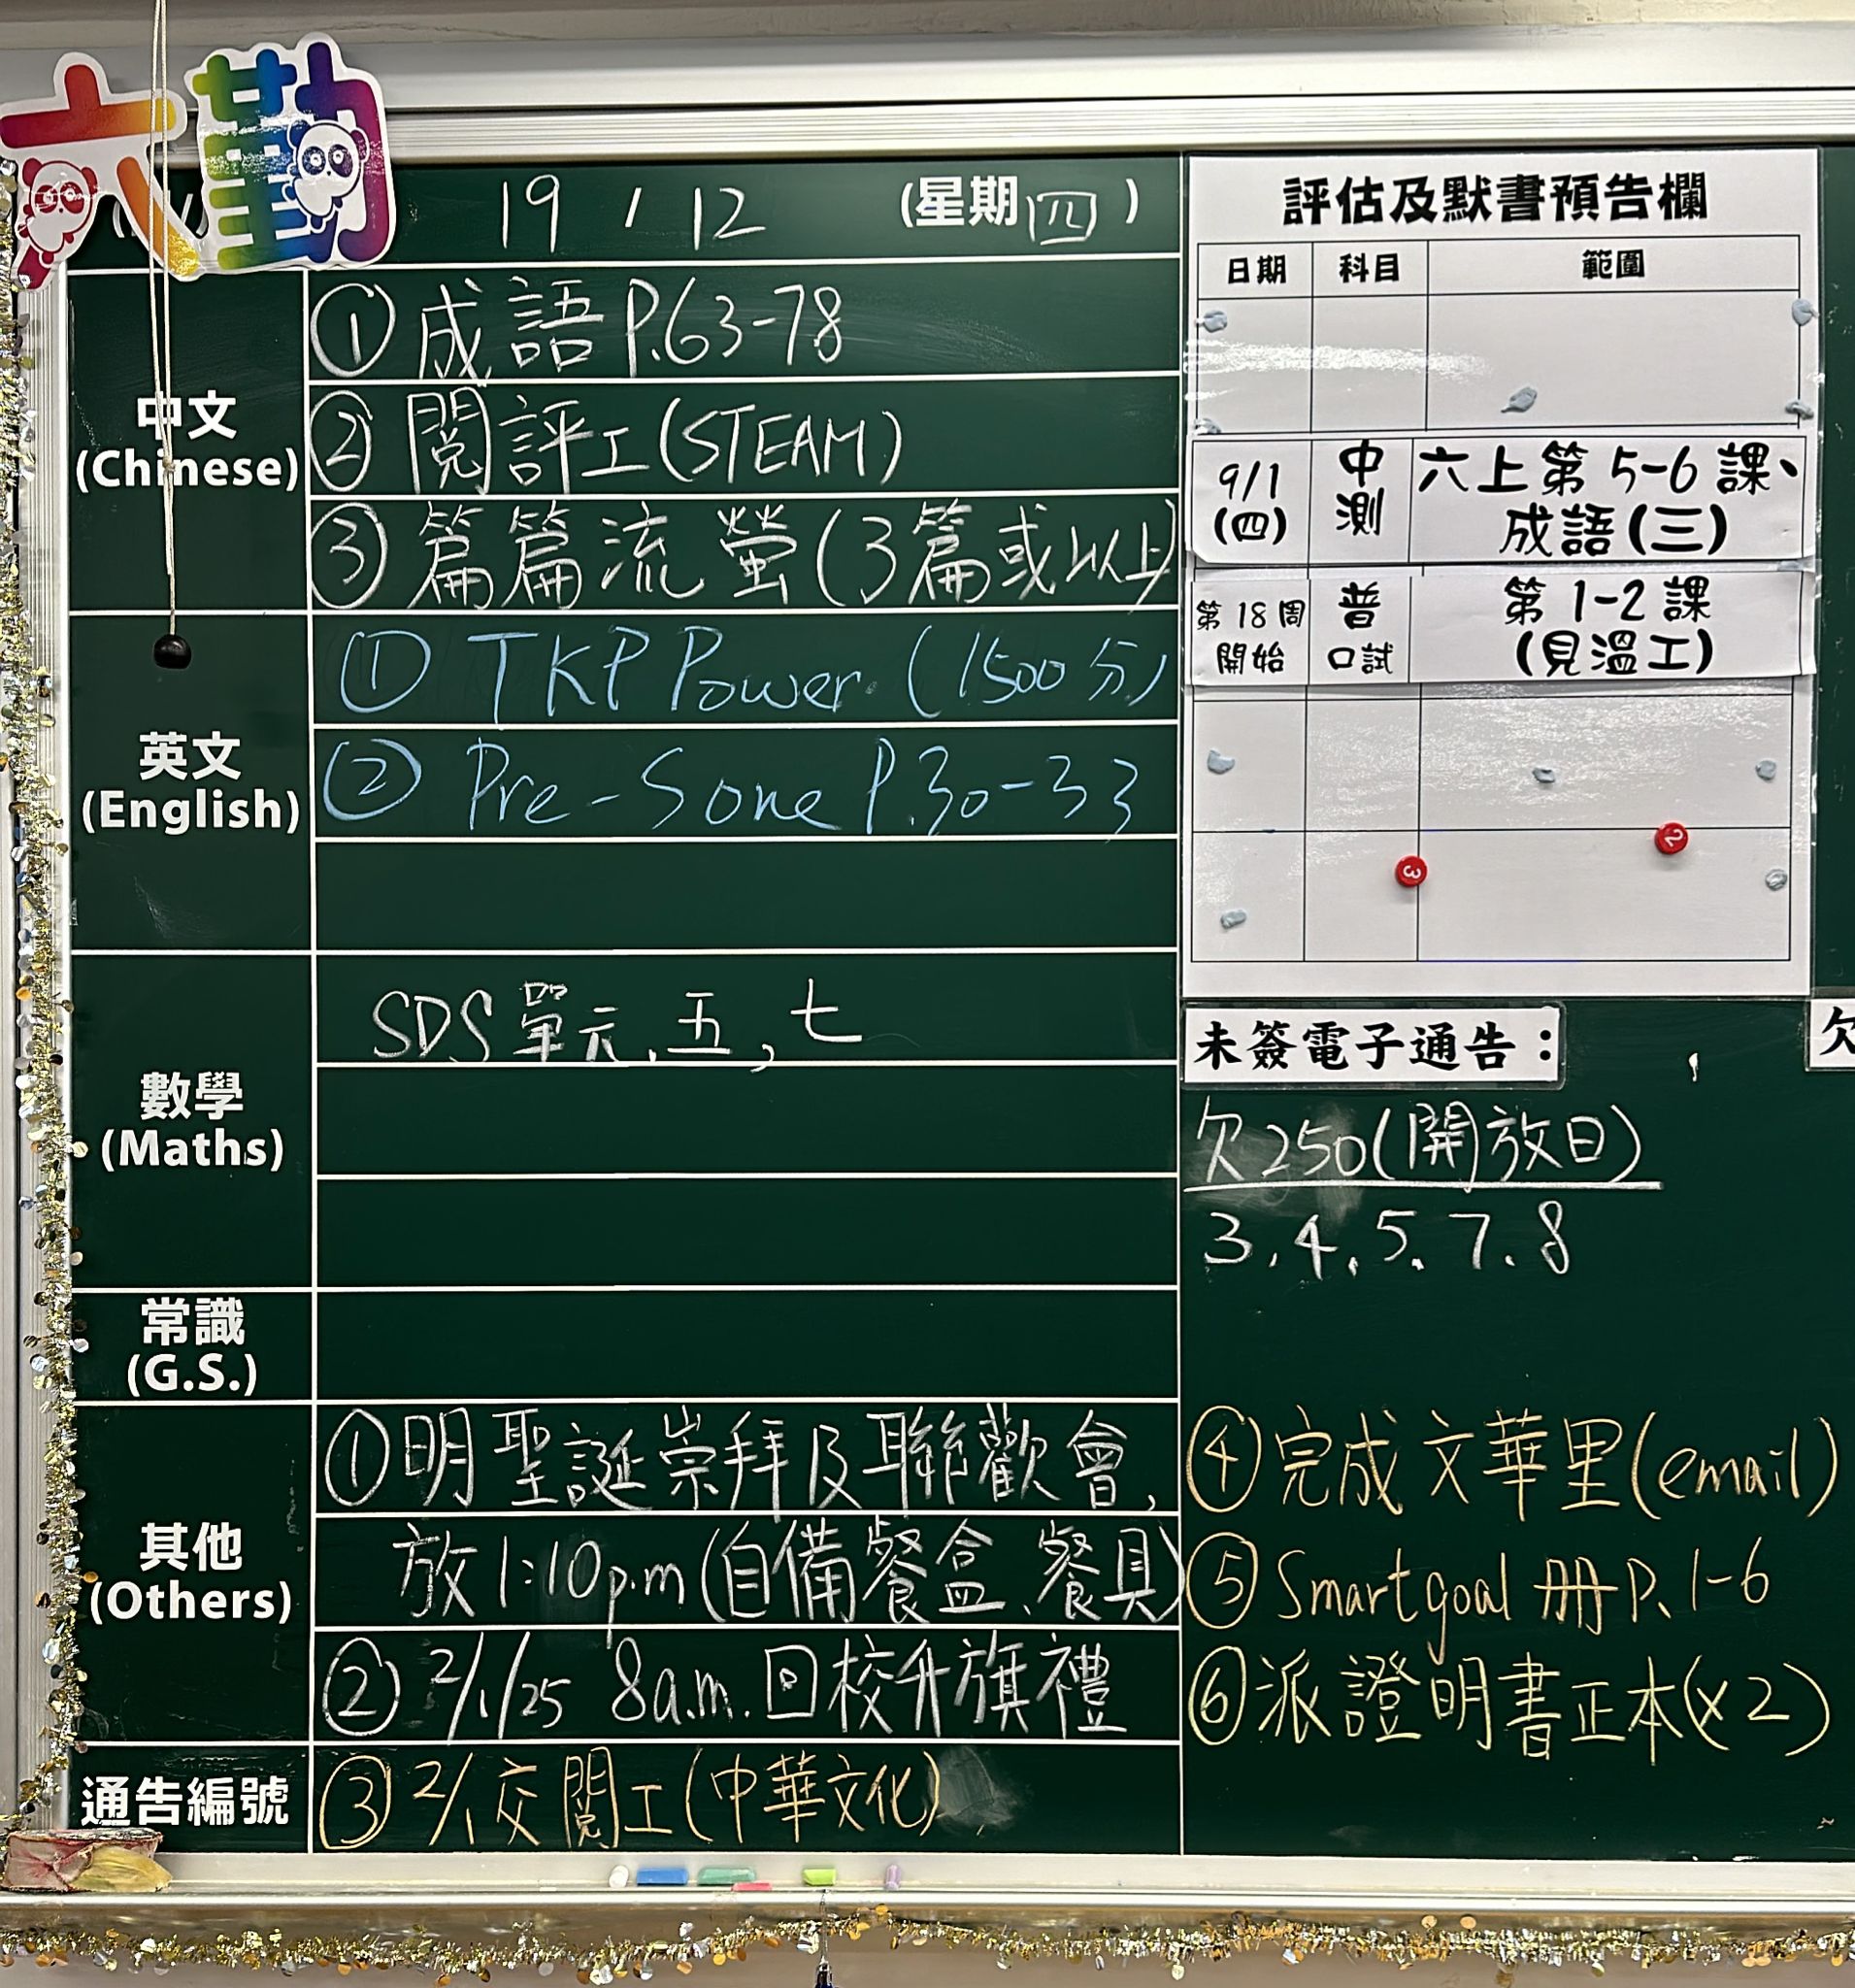 六勤
19 / 12 (星期四)
中文
(Chinese)
① 成語 P.63-78
② 閱評工(STEAM)
③ 篇篇流螢(3篇或以上)
英文
(English)
① TKP Power (1500分)
② Pre-Sone P.30-33
數學
(Maths)
SDS 單元 五, 七
常識
(G.S.)
其他
(Others)
① 明聖誕崇拜及聯歡會,
放1:10p.m(自備餐盒、餐具)
② 2/1/25 8a.m. 回校升旗禮
通告編號
③ 2/1交閱工(中華文化)
評估及默書預告欄
日期 科目 範圍
9/1
(四)
中
測
六上第 5-6 課、
成語(三)
第 18 周
開始
普
口試
第 1-2 課
(見溫工)
3
2
未簽電子通告:
欠
欠250(開放日)
3、4、5、7、8
④完成文華里(email)
⑤Smart goal 冊P. 1-6
⑥派證明書正本(x2)